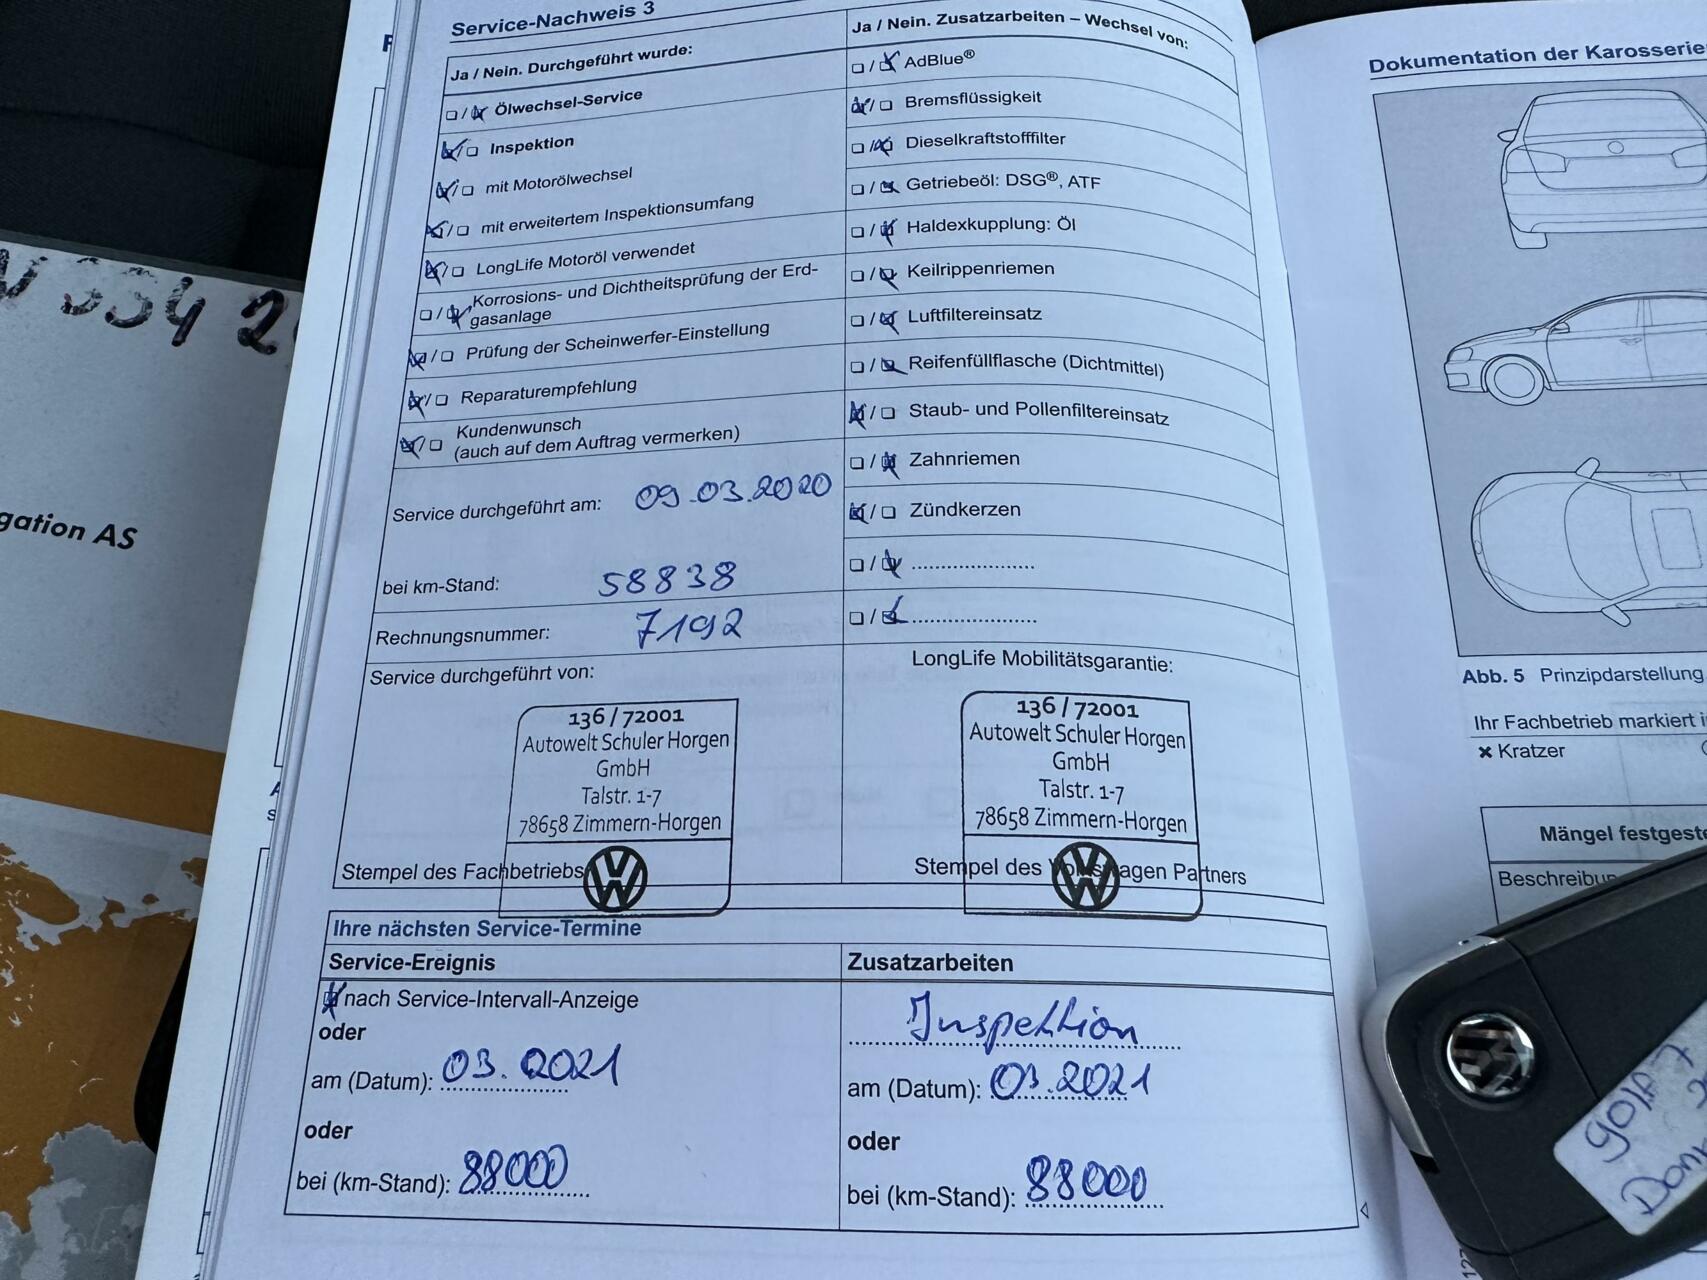 Service-Nachweis 3
Ja / Nein. Durchgeführt wurde:
Ölwechsel-Service
Inspektion
mit Motorölwechsel
mit erweitertem Inspektionsumfang
LongLife Motoröl verwendet
Korrosions- und Dichtheitsprüfung der Erd-
gasanlage
Prüfung der Scheinwerfer-Einstellung
Reparaturempfehlung
Kundenwunsch
(auch auf dem Auftrag vermerken)
Service durchgeführt am: 09.03.2020
bei km-Stand: 58838
Rechnungsnummer: 7192
Service durchgeführt von:
136 / 72001
Autowelt Schuler Horgen
GmbH
Talstr. 1-7
78658 Zimmern-Horgen
Stempel des Fachbetriebs
Ja / Nein. Zusatzarbeiten – Wechsel von:
AdBlue®
Bremsflüssigkeit
Dieselkraftstofffilter
Getriebeöl: DSG®, ATF
Haldexkupplung: Öl
Keilrippenriemen
Luftfiltereinsatz
Reifenfüllflasche (Dichtmittel)
Staub- und Pollenfiltereinsatz
Zahnriemen
Zündkerzen
LongLife Mobilitätsgarantie:
136 / 72001
Autowelt Schuler Horgen
GmbH
Talstr. 1-7
78658 Zimmern-Horgen
Stempel des Volkswagen Partners
Ihre nächsten Service-Termine
Service-Ereignis
nach Service-Intervall-Anzeige
oder
am (Datum): 03.2021
oder
bei (km-Stand): 88000
Zusatzarbeiten
Inspektion
am (Datum): 03.2021
oder
bei (km-Stand): 88000
Dokumentation der Karosserie
Abb. 5 Prinzipdarstellung
Ihr Fachbetrieb markiert
× Kratzer
Mängel festgeste
Beschreibun
gation AS
334 2
Golf 7